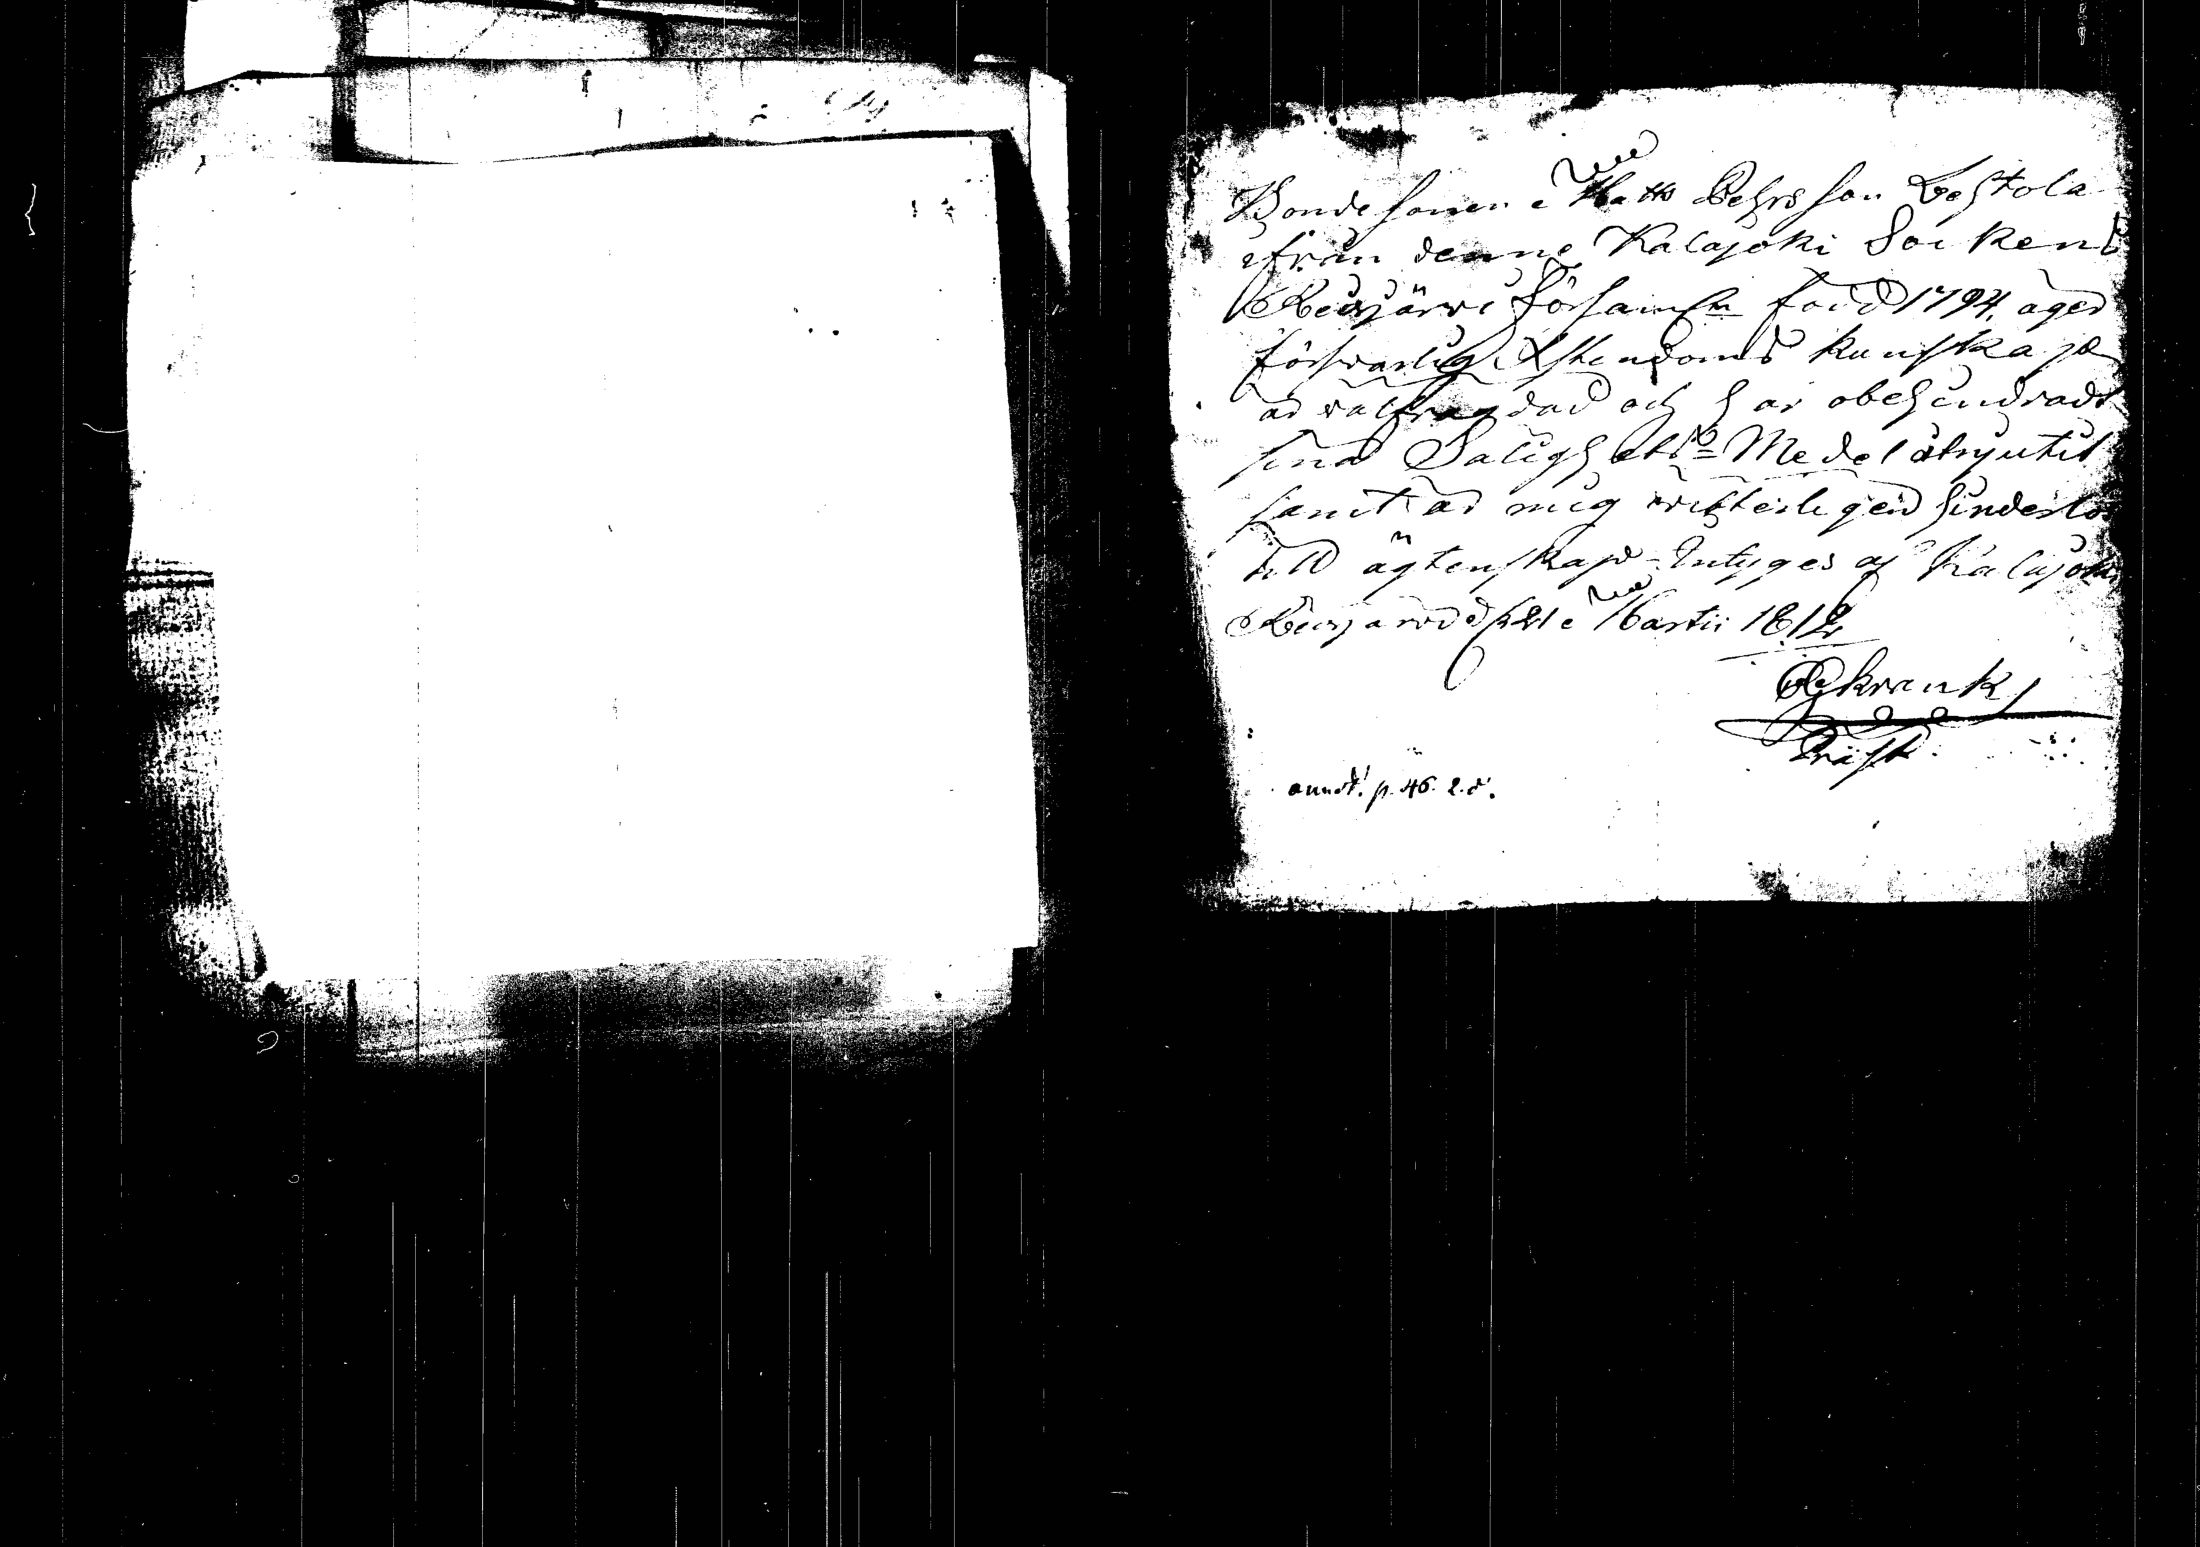 Bondesonen Matts Pehrsson Lestola
ifrån denne Kalajoki Sockens
Reisjärvi Församl:n född 1794, äger
försvarlig Christendoms kunskap
är välfrägdad och har obehindradt
sina Salighets Medel åtnjutit
samt är mig vitterligen hinderlös
till ägtenskap - Intyges af Kalajoki
Reisjärvi d 21 Martii 1812
Schrank
Präst
annot. p. 46. 2.d.